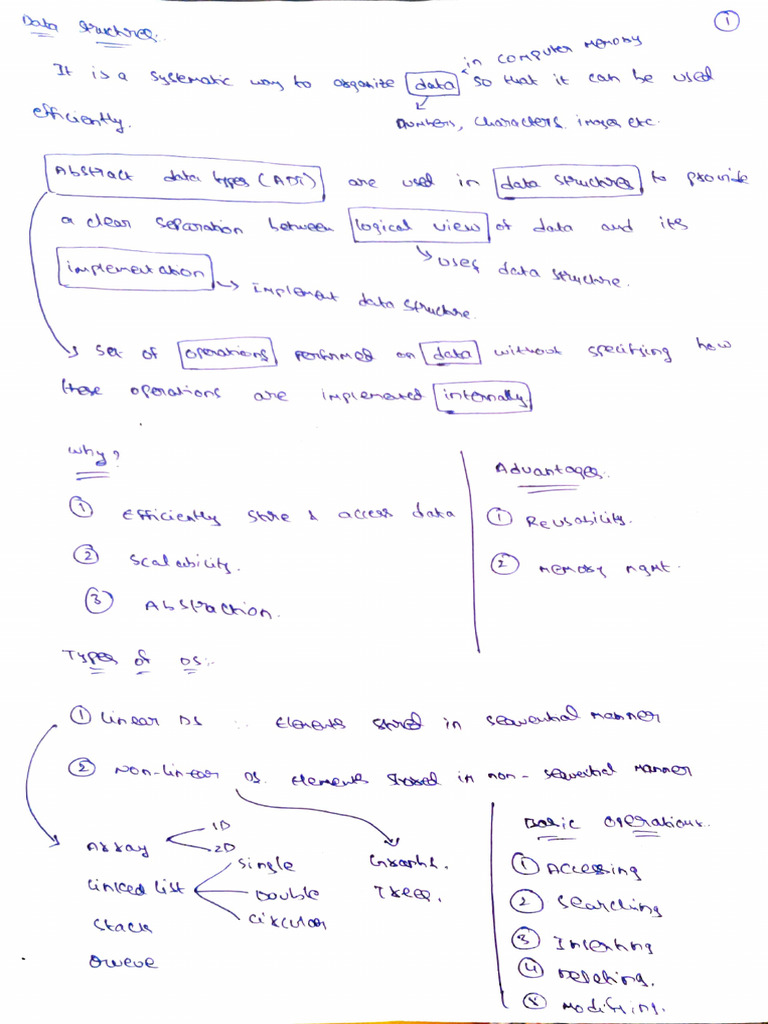 Data Structures:.
1
in computer memory
It is a systematic way to organize data so that it can be used
efficiently.
numbers, characters, images etc.
Abstract data types (ADTs) are used in data structures to provide
a clear separation between logical view of data and its
uses data structure.
implementation
implement data structure.
set of operations performed on data without specifying how
these operations are implemented internally
Why?
1 Efficiently store & access data
2 Scalability.
3 Abstraction.
Advantages:.
1 Reusability.
2 memory mgmt.
Types of DS:.
1 Linear DS :. Elements stored in sequential manner
2 Non-linear DS. Elements stored in non-sequential manner
Array
1D
2D
Linked list
Single
Double
Circular
Stack
Queue
Graphs.
Trees.
Basic Operations:.
1 Accessing
2 Searching
3 Inserting
4 Deleting.
Modifying.